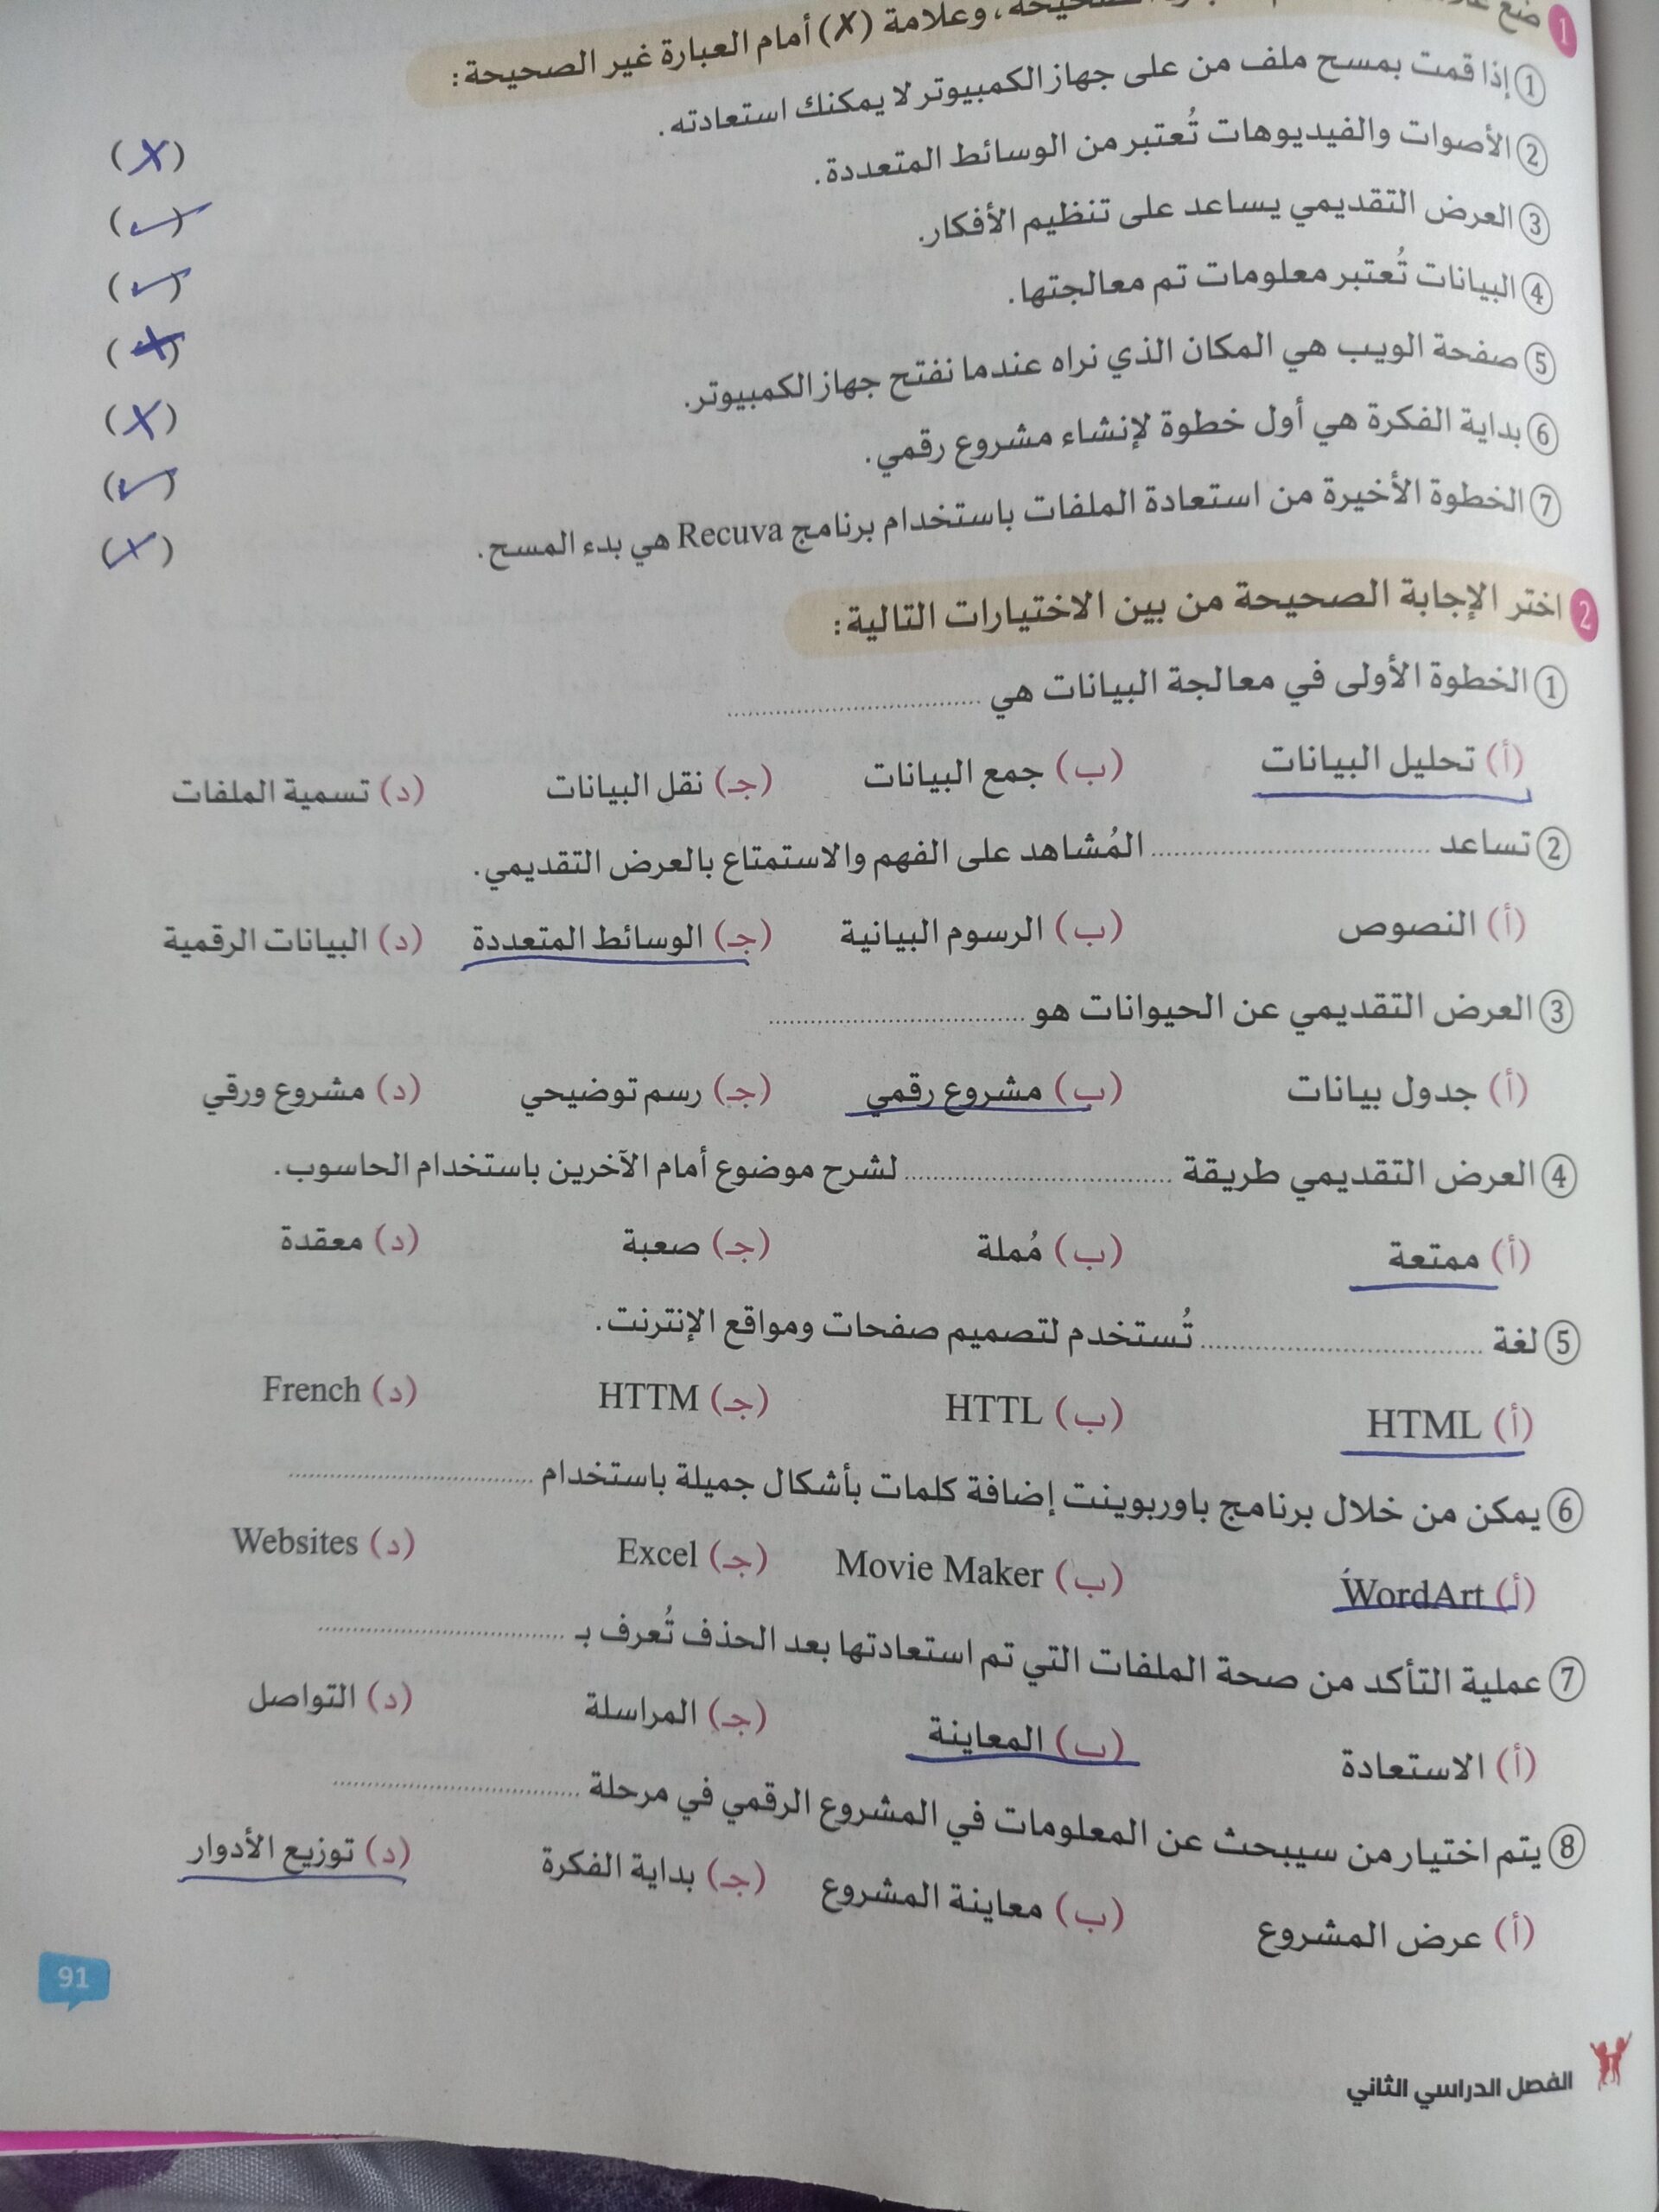 1 ضع وعلامة (X) أمام العبارة غير الصحيحة:
① إذا قمت بمسح ملف من على جهاز الكمبيوتر لا يمكنك استعادته. (X)
② الأصوات والفيديوهات تُعتبر من الوسائط المتعددة. (✓)
③ العرض التقديمي يساعد على تنظيم الأفكار. (✓)
④ البيانات تُعتبر معلومات تم معالجتها. (X)
⑤ صفحة الويب هي المكان الذي نراه عندما نفتح جهاز الكمبيوتر. (X)
⑥ بداية الفكرة هي أول خطوة لإنشاء مشروع رقمي. (✓)
⑦ الخطوة الأخيرة من استعادة الملفات باستخدام برنامج Recuva هي بدء المسح. (X)
2 اختر الإجابة الصحيحة من بين الاختيارات التالية:
① الخطوة الأولى في معالجة البيانات هي ..............................
(أ) تحليل البيانات (ب) جمع البيانات (جـ) نقل البيانات (د) تسمية الملفات
② تساعد .............................. المُشاهد على الفهم والاستمتاع بالعرض التقديمي.
(أ) النصوص (ب) الرسوم البيانية (جـ) الوسائط المتعددة (د) البيانات الرقمية
③ العرض التقديمي عن الحيوانات هو ..............................
(أ) جدول بيانات (ب) مشروع رقمي (جـ) رسم توضيحي (د) مشروع ورقي
④ العرض التقديمي طريقة .............................. لشرح موضوع أمام الآخرين باستخدام الحاسوب.
(أ) ممتعة (ب) مُملة (جـ) صعبة (د) معقدة
⑤ لغة .............................. تُستخدم لتصميم صفحات ومواقع الإنترنت.
(أ) HTML (ب) HTTL (جـ) HTTM (د) French
⑥ يمكن من خلال برنامج باوربوينت إضافة كلمات بأشكال جميلة باستخدام ..............................
(أ) WordArt (ب) Movie Maker (جـ) Excel (د) Websites
⑦ عملية التأكد من صحة الملفات التي تم استعادتها بعد الحذف تُعرف بـ ..............................
(أ) الاستعادة (ب) المعاينة (جـ) المراسلة (د) التواصل
⑧ يتم اختيار من سيبحث عن المعلومات في المشروع الرقمي في مرحلة ..............................
(أ) عرض المشروع (ب) معاينة المشروع (جـ) بداية الفكرة (د) توزيع الأدوار
91
الفصل الدراسي الثاني